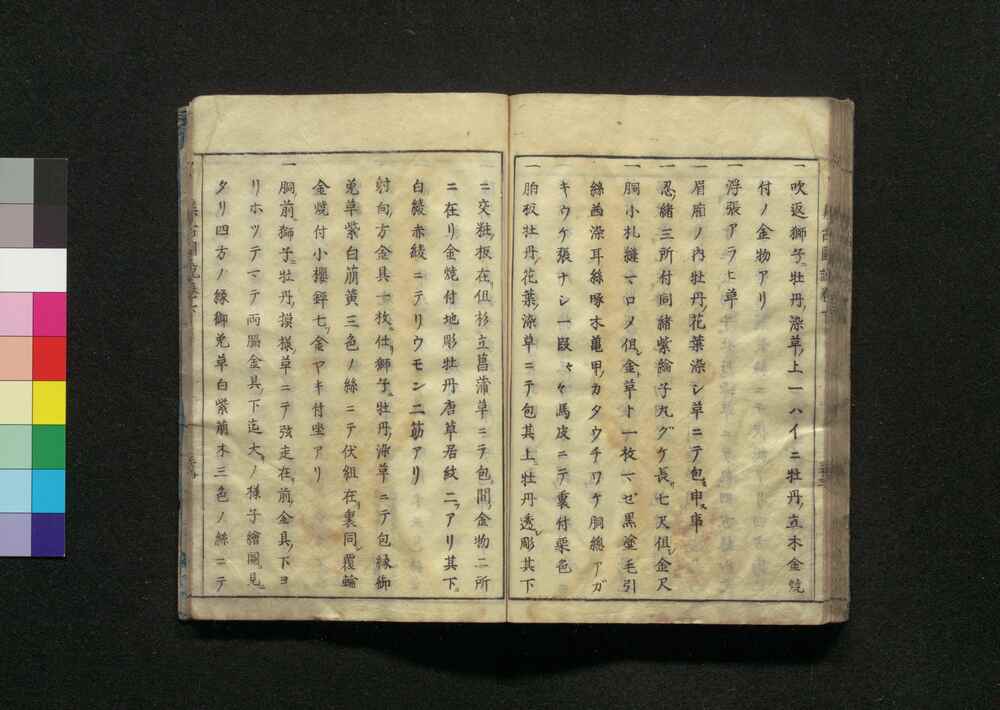 一 吹返獅子ニ牡丹ノ染革ノ上一ハイニ牡丹ノ立木金焼
付ノ金物アリ
一 浮張アラヒ革
一 眉廂ノ内牡丹ノ花葉染シ革ニテ包ヌ
一 忍ノ緒三所付同緒紫綸子丸グケ長サ七尺但シ金尺
一 胴小札縫マロメ但シ金革ト一枚マゼ黒塗毛引
絲茜染耳絲啄木亀甲ノカタウチワケ胴總アガ
キウケ張ナシ一段ヤヤ馬皮ニテ裏付栗色
一 胸板牡丹ノ花葉ノ染革ニテ包其上ニ牡丹透シ彫其下
ニ交リ在リ但杉立菖蒲革ニテ包ム間ニ金物二所
ニ在リ金焼付地彫牡丹唐草居紋二ツアリ其下ニ
白綾赤綾ニテリウモン二筋アリ
一 射向ノ方金具一枚仕獅子ニ牡丹ノ染革ニテ包縁御
免革紫白萠黄三色ノ絲ニテ伏組在リ裏同シ覆輪
金焼付小櫻鋲七ツ金ヤキ付坐アリ
一 胴前獅子ニ牡丹ノ摸様革ニテ弦走在リ前ノ金具ノ下ヨ
リホツテマテ両脇金具ノ下迄大ノ様子繪圖ニ見ヘ
タリ四方ノ縁御免革白紫萠木三色ノ絲ニテ